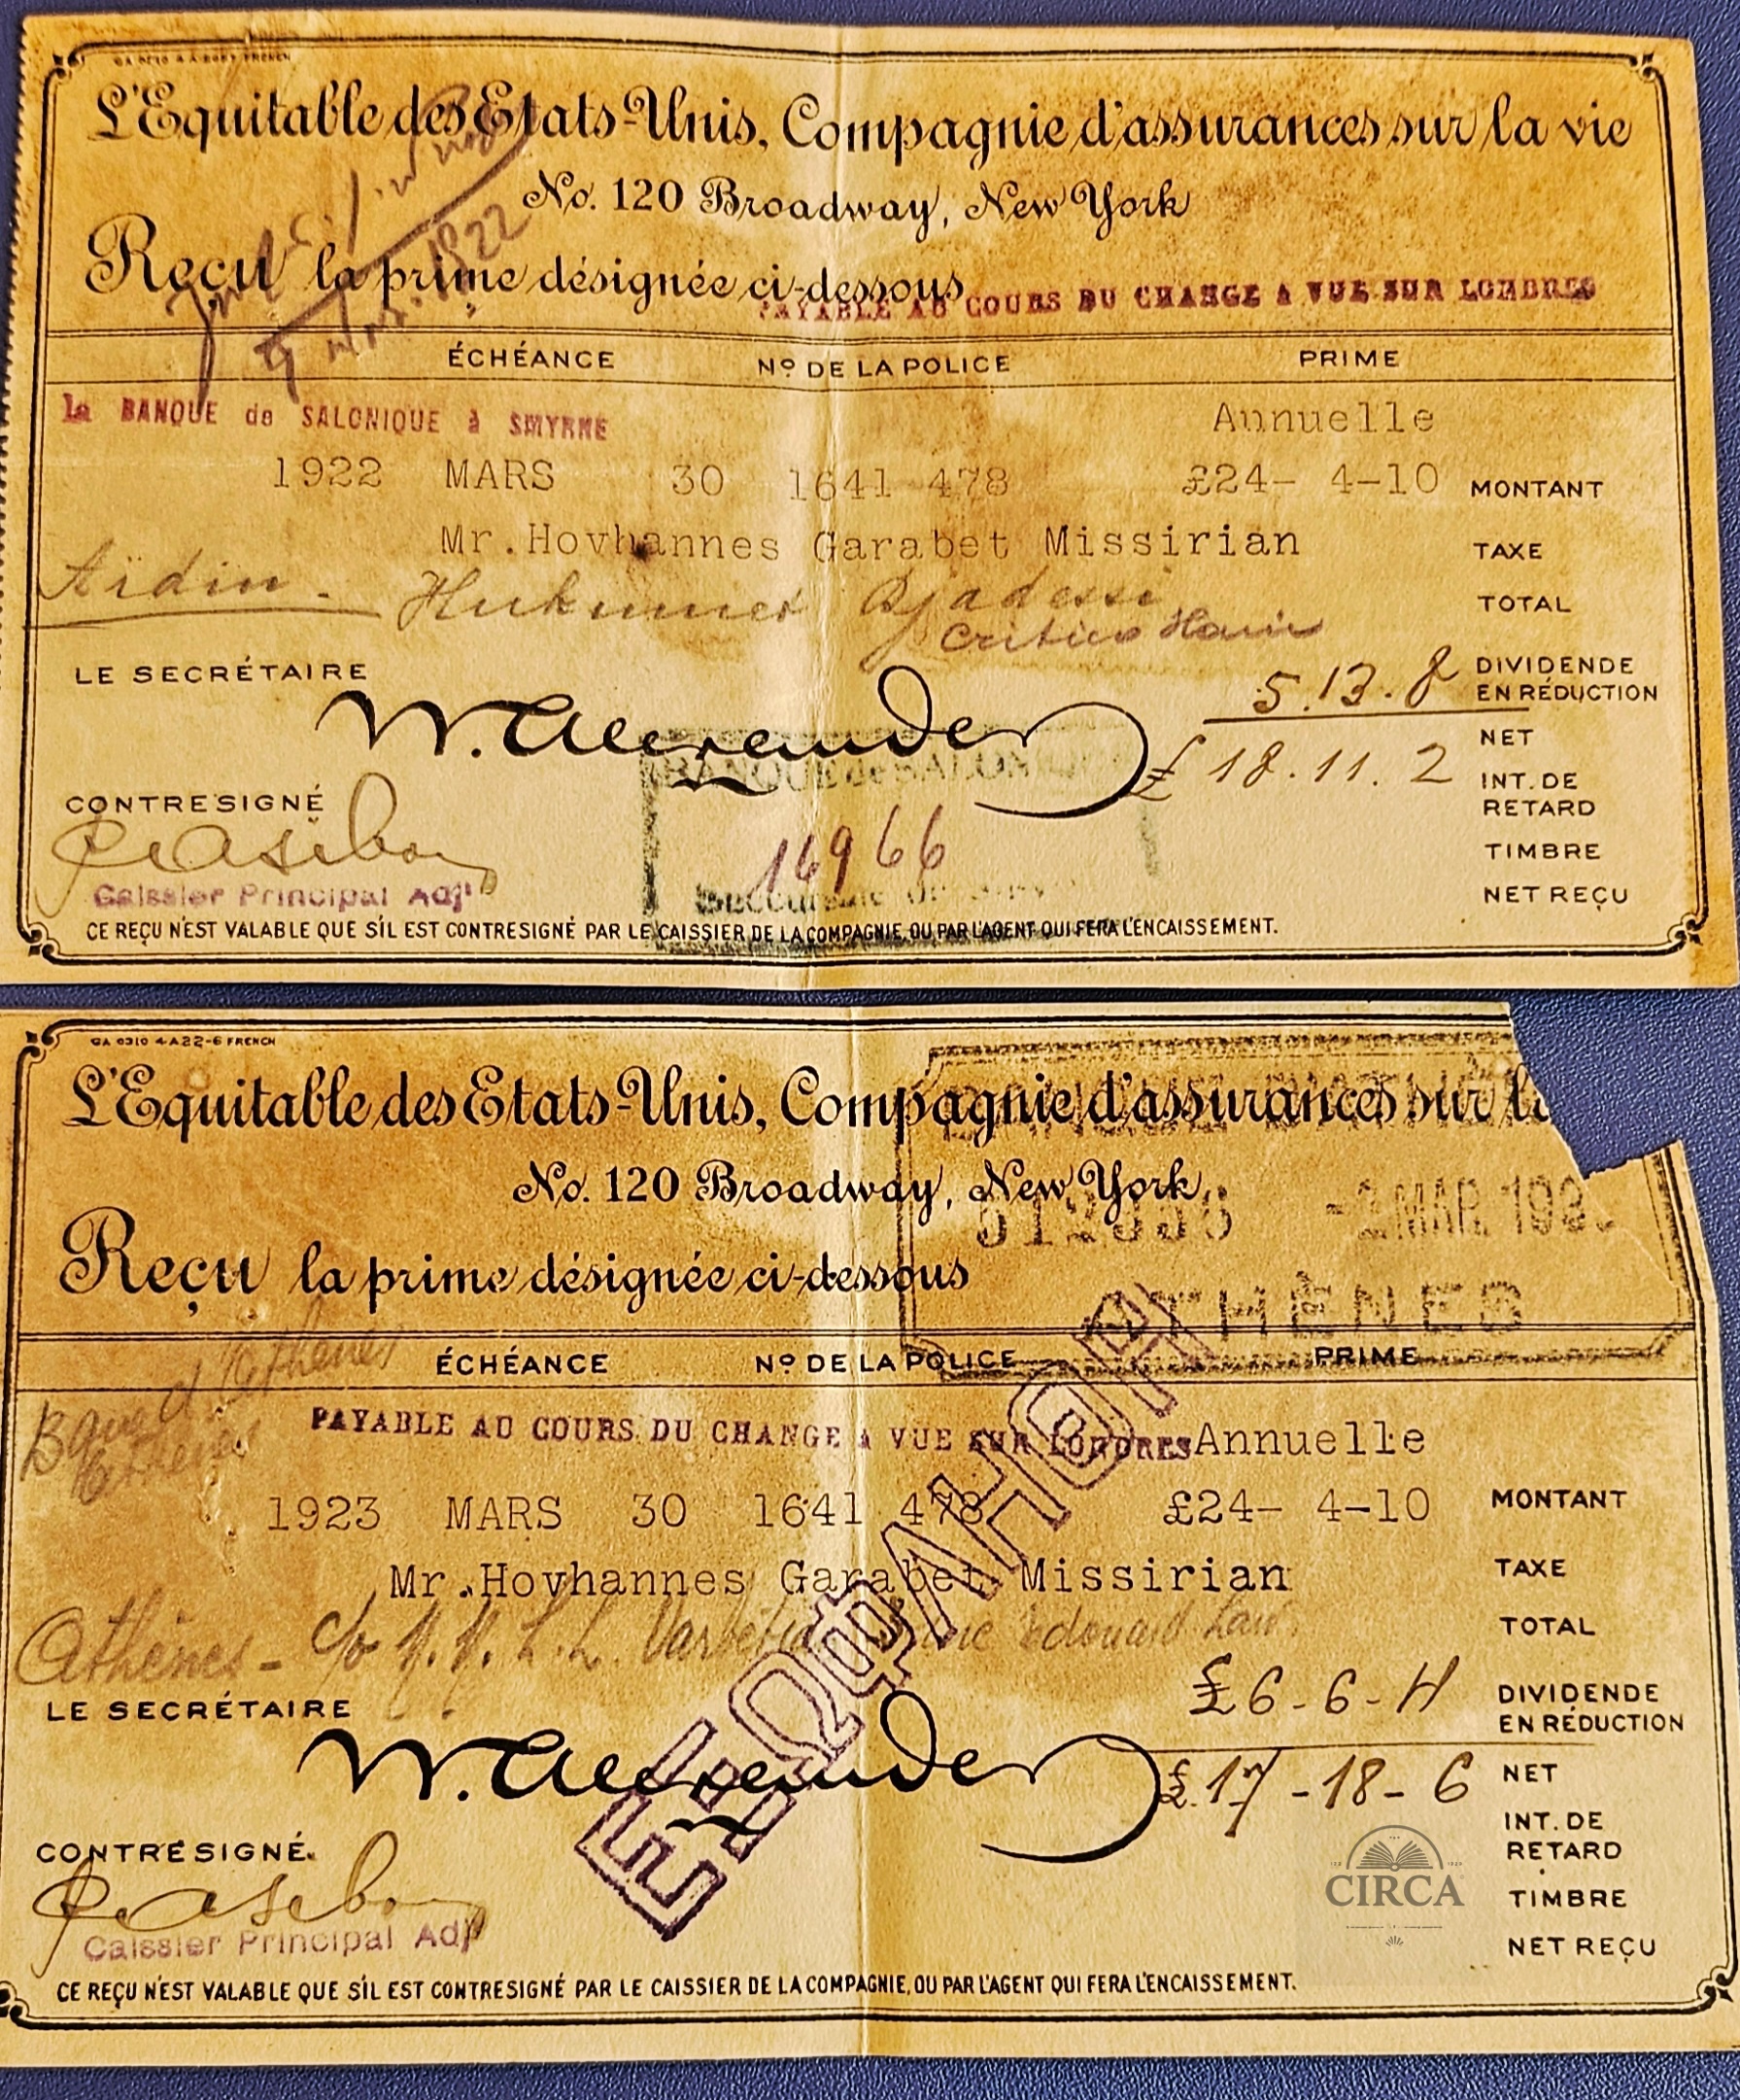 L'Equitable des Etats-Unis, Compagnie d'assurances sur la vie
No. 120 Broadway, New York
Reçu la prime désignée ci-dessous
1922
PAYABLE AU COURS DU CHANGE A VUE SUR LONDRES
ÉCHÉANCE No DE LA POLICE PRIME
la BANQUE de SALONIQUE à SMYRNE
Annuelle
1922 MARS 30 1641 478 £24- 4-10 MONTANT
Mr.Hovhannes Garabet Missirian TAXE
Aïdin. Hukumet Djadessi TOTAL
LE SECRÉTAIRE 5.13.8 DIVIDENDE EN RÉDUCTION
W. Alexander
£ 18.11.2 NET
BANQUE de SALONIQUE
INT. DE RETARD
CONTRESIGNÉ
16966
TIMBRE
Caissier Principal Adjt
NET REÇU
CE REÇU N'EST VALABLE QUE S'IL EST CONTRESIGNÉ PAR LE CAISSIER DE LA COMPAGNIE, OU PAR L'AGENT QUI FERA L'ENCAISSEMENT.
GA 0310 4A22-6 FRENCH
L'Equitable des Etats-Unis, Compagnie d'assurances sur
No. 120 Broadway, New York
-2 MAR.
Reçu la prime désignée ci-dessous
ATHÈNES
ÉCHÉANCE No DE LA POLICE PRIME
Banq. d'Athènes
Athènes
PAYABLE AU COURS DU CHANGE A VUE SUR LONDRES Annuelle
1923 MARS 30 1641 478 £24- 4-10 MONTANT
Mr.Hovhannes Garabet Missirian TAXE
Athènes - c/o Edouard TOTAL
ΕΞΩΦΛΗΘΗ
LE SECRÉTAIRE £6-6-4 DIVIDENDE EN RÉDUCTION
W. Alexander
£17-18-6 NET
INT. DE RETARD
CONTRESIGNÉ
CIRCA
TIMBRE
Caissier Principal Adjt
NET REÇU
CE REÇU N'EST VALABLE QUE S'IL EST CONTRESIGNÉ PAR LE CAISSIER DE LA COMPAGNIE, OU PAR L'AGENT QUI FERA L'ENCAISSEMENT.